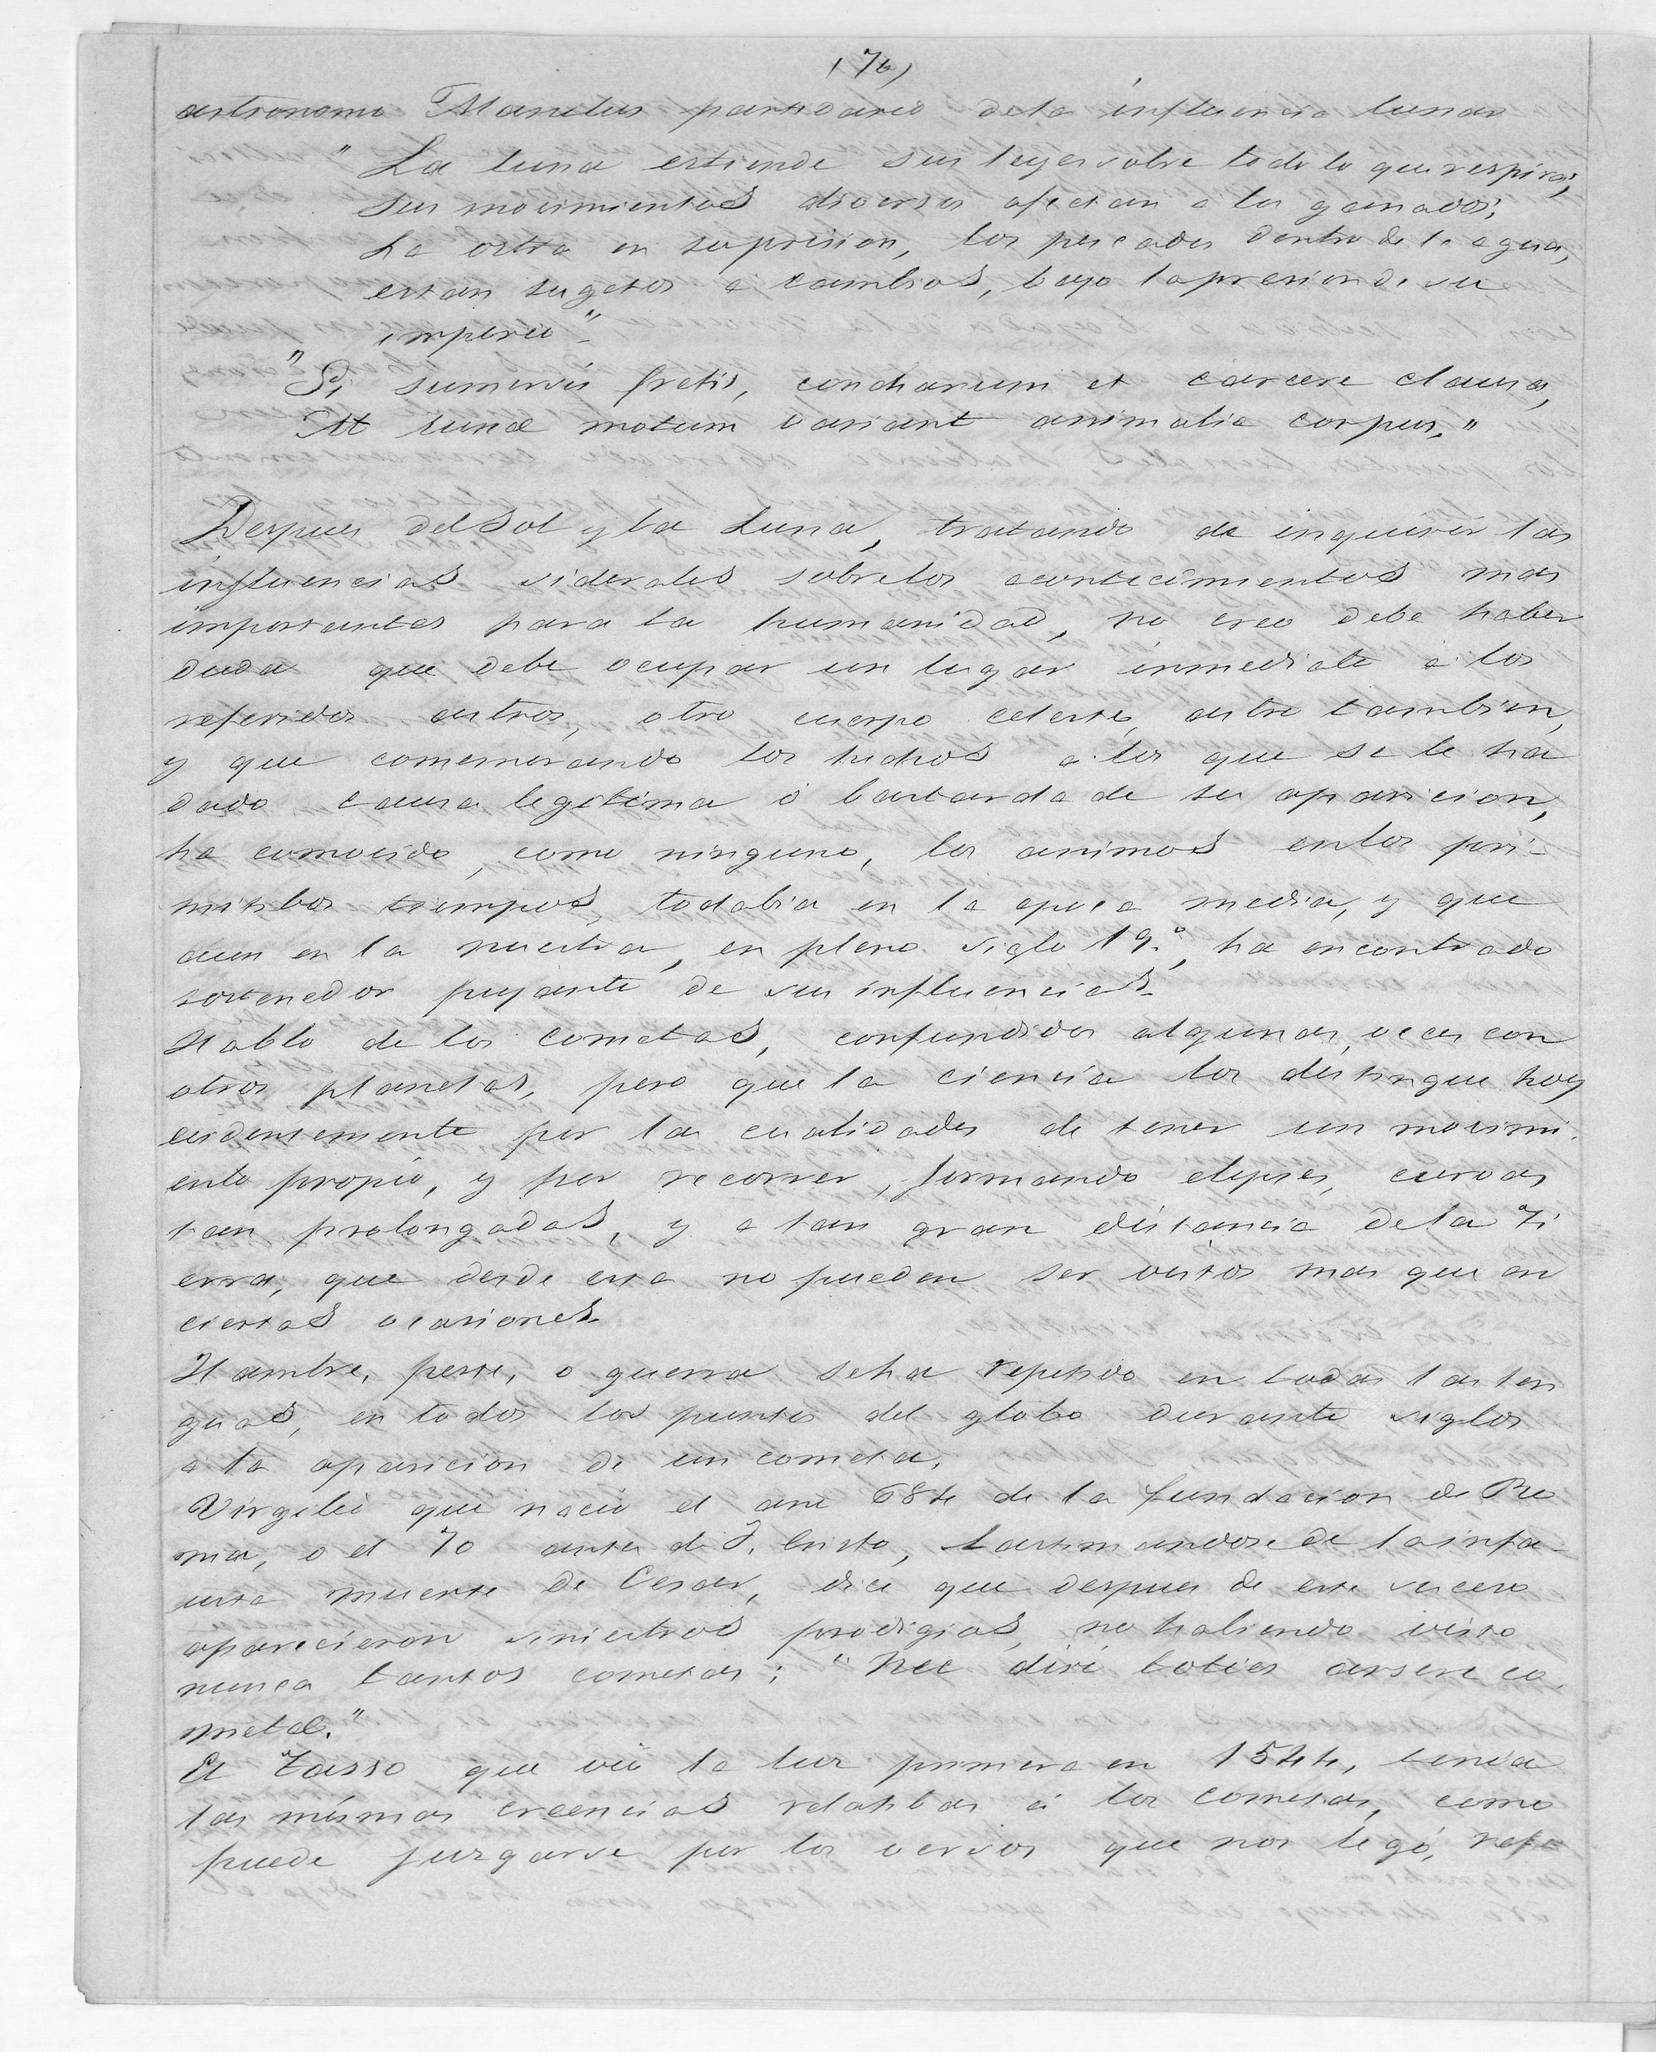 (76)
astronomo Manelus partidario dela influencia lunar
" La luna estiende sus leyes sobre todo lo que respira;
sus movimientos diversos afectan a los ganados;
La ostra en su prision, los pescados dentro de la agua,
estan sugetos a cambios, bajo la presion de su
imperio"
"Si sumersis fretis, concharum et carcere clausa,
At lunæ motum variant animalia corpus."
Despues del Sol y la Luna, tratando de inquirir las
influencias siderales sobre los acontecimientos mas
importantes para la humanidad, no creo debe haber
duda que debe ocupar un lugar inmediato a los
referidos astros, otro cuerpo celeste, astro tambien,
y que comemorando los hechos a los que se le ha
dado causa legitima ó bastarda de su aparicion,
ha comovido, como ninguno, los animos en los pri-
mitibos tiempos, todabia en la epoca media, y que
aun en la nuestra, en pleno siglo 19.º, ha encontrado
sostenedor pujante de sus influencias.
Hablo de los cometas, confundidos algunas veces con
otros planetas, pero que la ciencia los distingue hoy
evidentemente por las cualidades de tener un movimi-
ento propio, y por recorrer, formando elipses, curvas
tan prolongadas, y a tan gran distancia de la Ti
erra, que desde esta no pueden ser vistos mas que en
ciertas ocasiones.
Hambre, peste, o guerra se ha repetido en todas las len
guas, en todos los puntos del globo durante siglos
a la aparicion de un cometa.
Virgilio que nació el año 684 de la fundacion de Ro
ma, o el 70 antes de J. Cristo, lastimandose de la infa-
usta muerte de Cesar, dice que despues de este suceso
aparecieron siniestros prodigios, no habiendo visto
nunca tantos cometas: "Nec diri toties arsere co-
metæ."
El Tasso que vió la luz primera en 1544, tenia
las mismas creencias relatibas á los cometas, como
puede juzgarse por los versos que nos legó, refi-